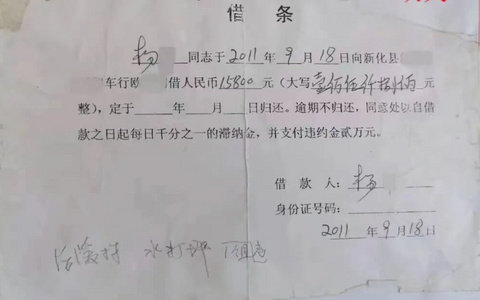 借 条
杨 同志于2011年9月18日向新化县
车行欧 借人民币15800元(大写壹佰伍仟捌佰元
整),定于 年 月 日归还。逾期不归还,同意处以自借
款之日起每日千分之一的滞纳金,并支付违约金贰万元。
借 款 人:杨
身份证号码:
2011 年9月18日